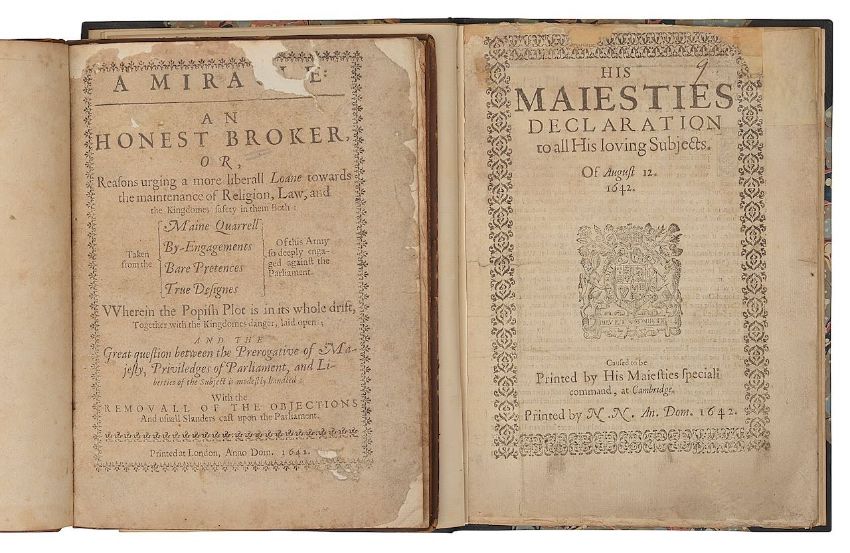 A MIRA E:
AN
HONEST BROKER,
OR,
Reaſons urging a more liberall Loane towards
the maintenance of Religion, Law, and
the Kingdomes ſafety in them Both:
Taken
from the
Maine Quarrell
By-Engagements
Bare Pretences
True Deſignes
Of this Army
ſo deeply enga-
ged againſt the
Parliament.
VVherein the Popiſh Plot is in its whole drift,
Together with the Kingdomes danger, laid open:
AND THE
Great queſtion between the Prerogative of Ma-
jeſty, Priviledges of Parliament, and Li-
berties of the Subject is modeſtly handled:
With the
REMOVALL OF THE OBJECTIONS
And uſuall Slanders caſt upon the Parliament.
Printed at London, Anno Dom. 1642.
9
HIS
MAIESTIES
DECLARATION
to all His loving Subjects.
Of Auguſt 12.
1642.
Cauſed to be
Printed by His Maieſties ſpeciall
command, at Cambridge.
Printed by N. N. An. Dom. 1642.